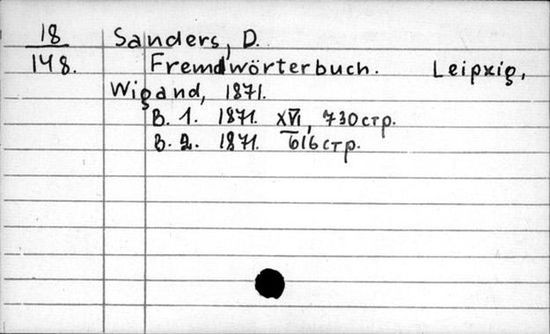 18 Sanders, D.
148. Fremdwörterbuch. Leipzig,
Wigand, 1871.
B. 1. 1871. XVI, 730 стр.
B. 2. 1871. 616 стр.